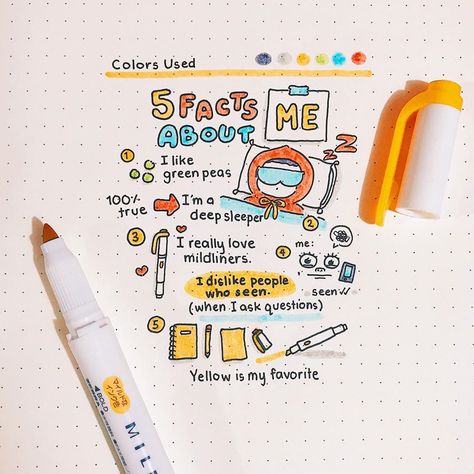 Colors Used
5 FACTS
ABOUT ME
Z Z
1
I like
green peas
100%
true
I'm a
deep sleeper
2
3
I really love
mildliners.
4
me:
I dislike people
who seen.
seen
(when I ask questions)
5
Yellow is my favorite
BOLD
MIL